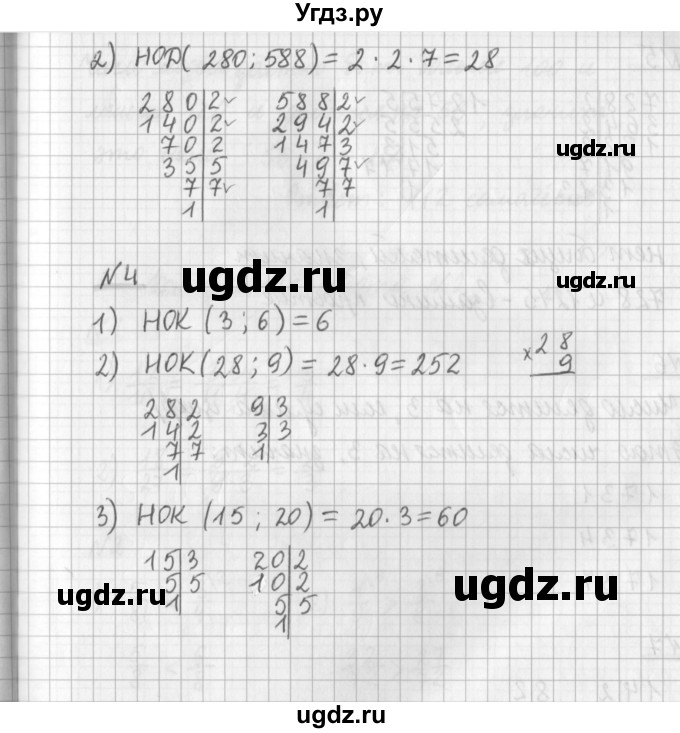 Угдз.ру
2) НОД( 280; 588) = 2 · 2 · 7 = 28
280|2✓ 588|2✓
140|2✓ 294|2✓
70|2 147|3
35|5 49|7✓
7|7✓ 7|7
1| 1|
ugdz.ru ugdz.ru
N4
ugdz.ru ugdz.ru
1) НОК (3; 6) = 6
2) НОК(28; 9) = 28·9=252
× 28
9
28|2 9|3
14|2 3|3
7|7 1|
1|
ugdz.ru ugdz.ru
3) НОК (15; 20) = 20·3=60
15|3 20|2
5|5 10|2
1| 5|5
1|
ugdz.ru ugdz.ru
ugdz.ru